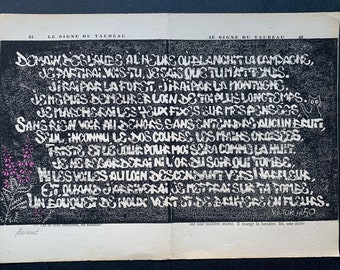 LE SIGNE DU TAUREAU LE SIGNE DU TAUREAU
DEMAIN, DES L'AUBE, A L'HEURE OU BLANCHIT LA CAMPAGNE,
JE PARTIRAI. VOIS-TU, JE SAIS QUE TU M'ATTENDS.
J'IRAI PAR LA FORET, J'IRAI PAR LA MONTAGNE.
JE NE PUIS DEMEURER LOIN DE TOI PLUS LONGTEMPS.
JE MARCHERAI LES YEUX FIXES SUR MES PENSEES
SANS RIEN VOIR AU DEHORS, SANS ENTENDRE AUCUN BRUIT,
SEUL, INCONNU, LE DOS COURBE, LES MAINS CROISEES,
TRISTE, ET LE JOUR POUR MOI SERA COMME LA NUIT.
JE NE REGARDERAI NI L'OR DU SOIR QUI TOMBE,
NI LES VOILES AU LOIN DESCENDANT VERS HARFLEUR,
ET QUAND J'ARRIVERAI, JE METTRAI SUR TA TOMBE,
UN BOUQUET DE HOUX VERT ET DE BRUYERE EN FLEURS.
V. HUGO
est une matière morte. Il mangit la lumière. Ici, une